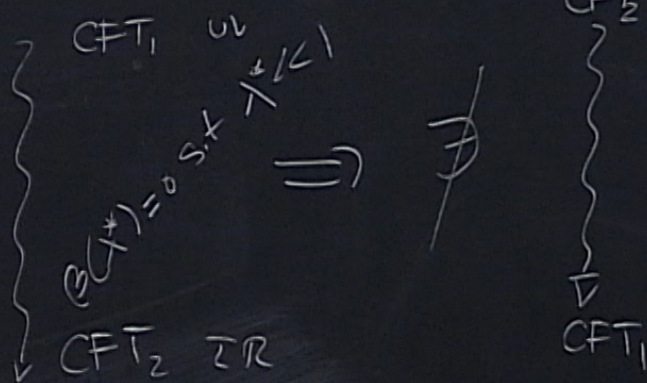 CFT₁ UV
β(λ*)=0 s.t λ*<<1
CFT₂ IR
⇒ ∄
CFT₂
CFT₁